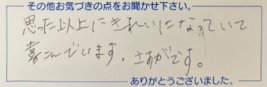 その他お気づきの点をお聞かせ下さい。
思った以上にきれいになっていて
喜こんでいます。さすがです。
ありがとうございました。